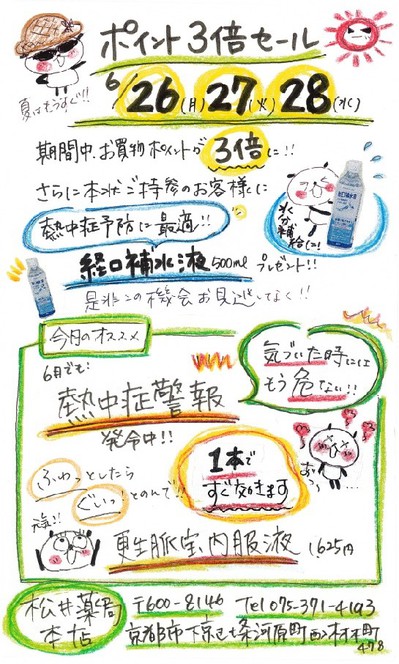 ポイント3倍セール
夏はもうすぐ!!
6/26(月)27(火)28(水)
期間中、お買物ポイントが3倍に!!
さらに本状ご持参のお客様に
熱中症予防に最適!!
水分補給に!
経口補水液500mlプレゼント!!
是非この機会お見逃しなく!!
今月のオススメ
気づいた時には
もう危ない!!
6月でも
熱中症警報
発令中!!
あつ〜
ふわっとしたら
ぐいっとのんで!!
1本で
すぐ効きます
元気!!
更生脈宝内服液 1625円
松井薬局
本店
〒600-8146 Tel 075-371-4193
京都市下京区七条河原町西入材木町
478